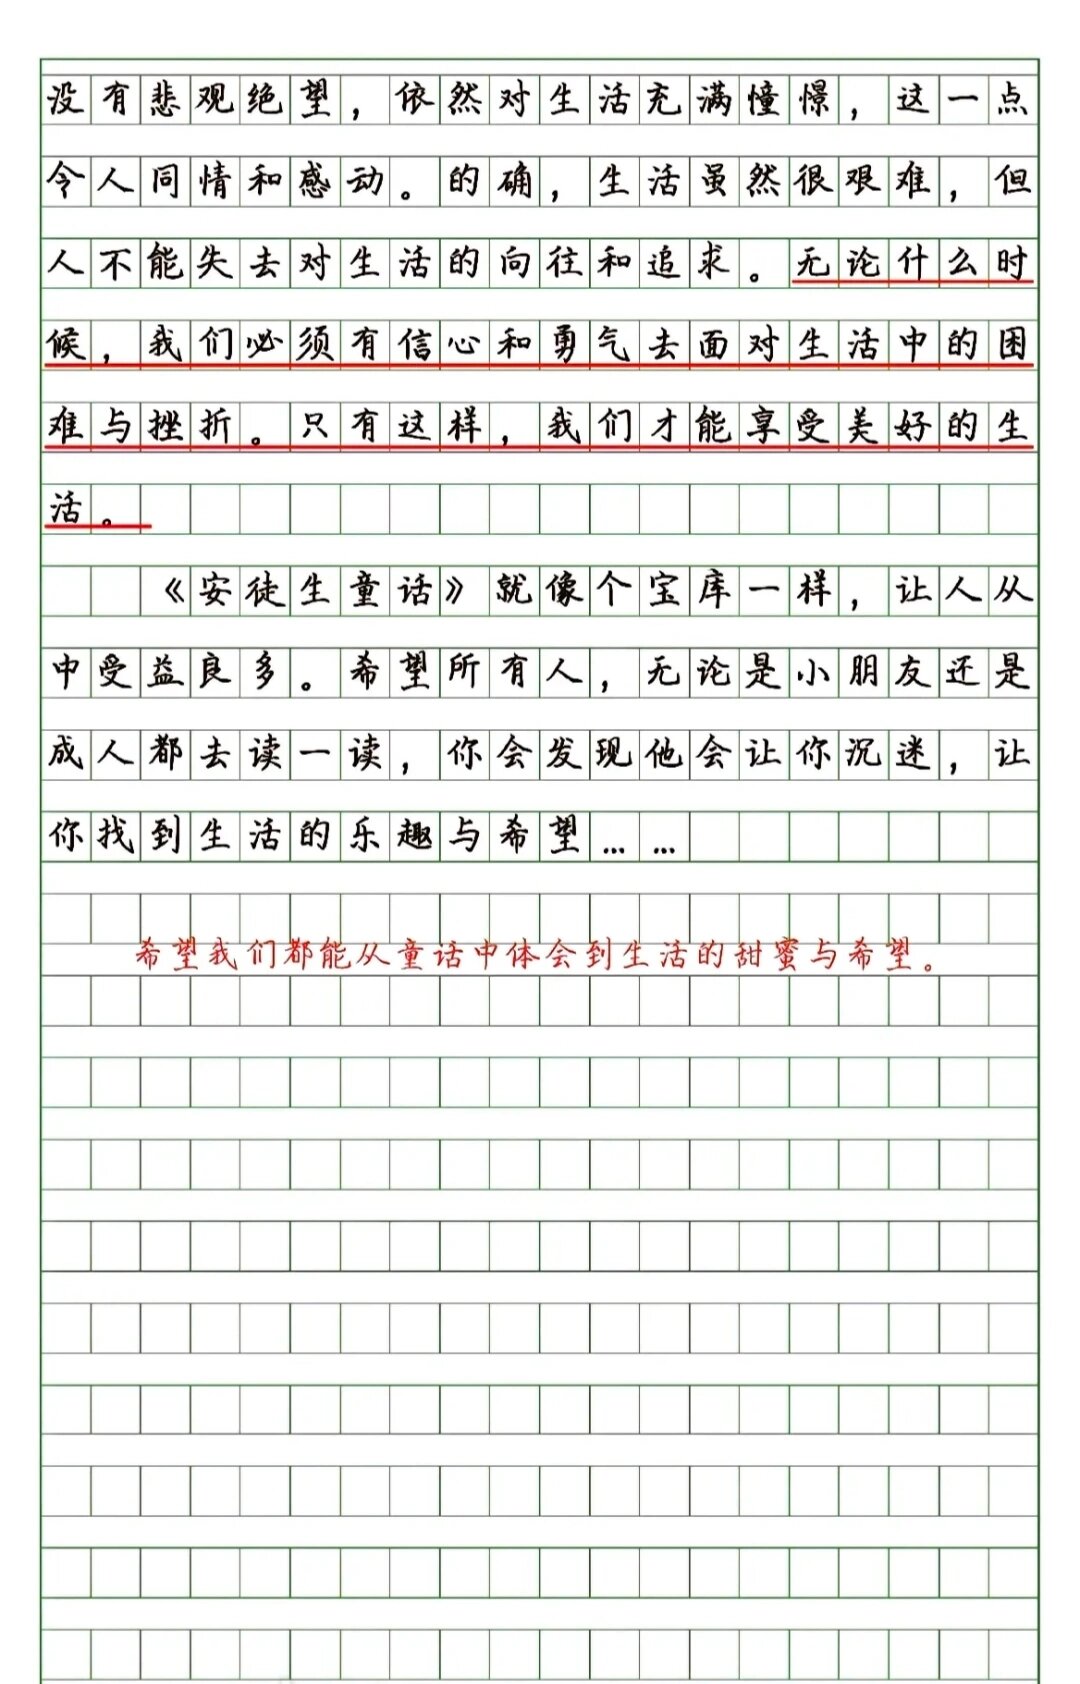 没有悲观绝望，依然对生活充满憧憬，这一点
令人同情和感动。的确，生活虽然很艰难，但
人不能失去对生活的向往和追求。无论什么时
候，我们必须有信心和勇气去面对生活中的困
难与挫折。只有这样，我们才能享受美好的生
活。
《安徒生童话》就像个宝库一样，让人从
中受益良多。希望所有人，无论是小朋友还是
成人都去读一读，你会发现他会让你沉迷，让
你找到生活的乐趣与希望……
希望我们都能从童话中体会到生活的甜蜜与希望。